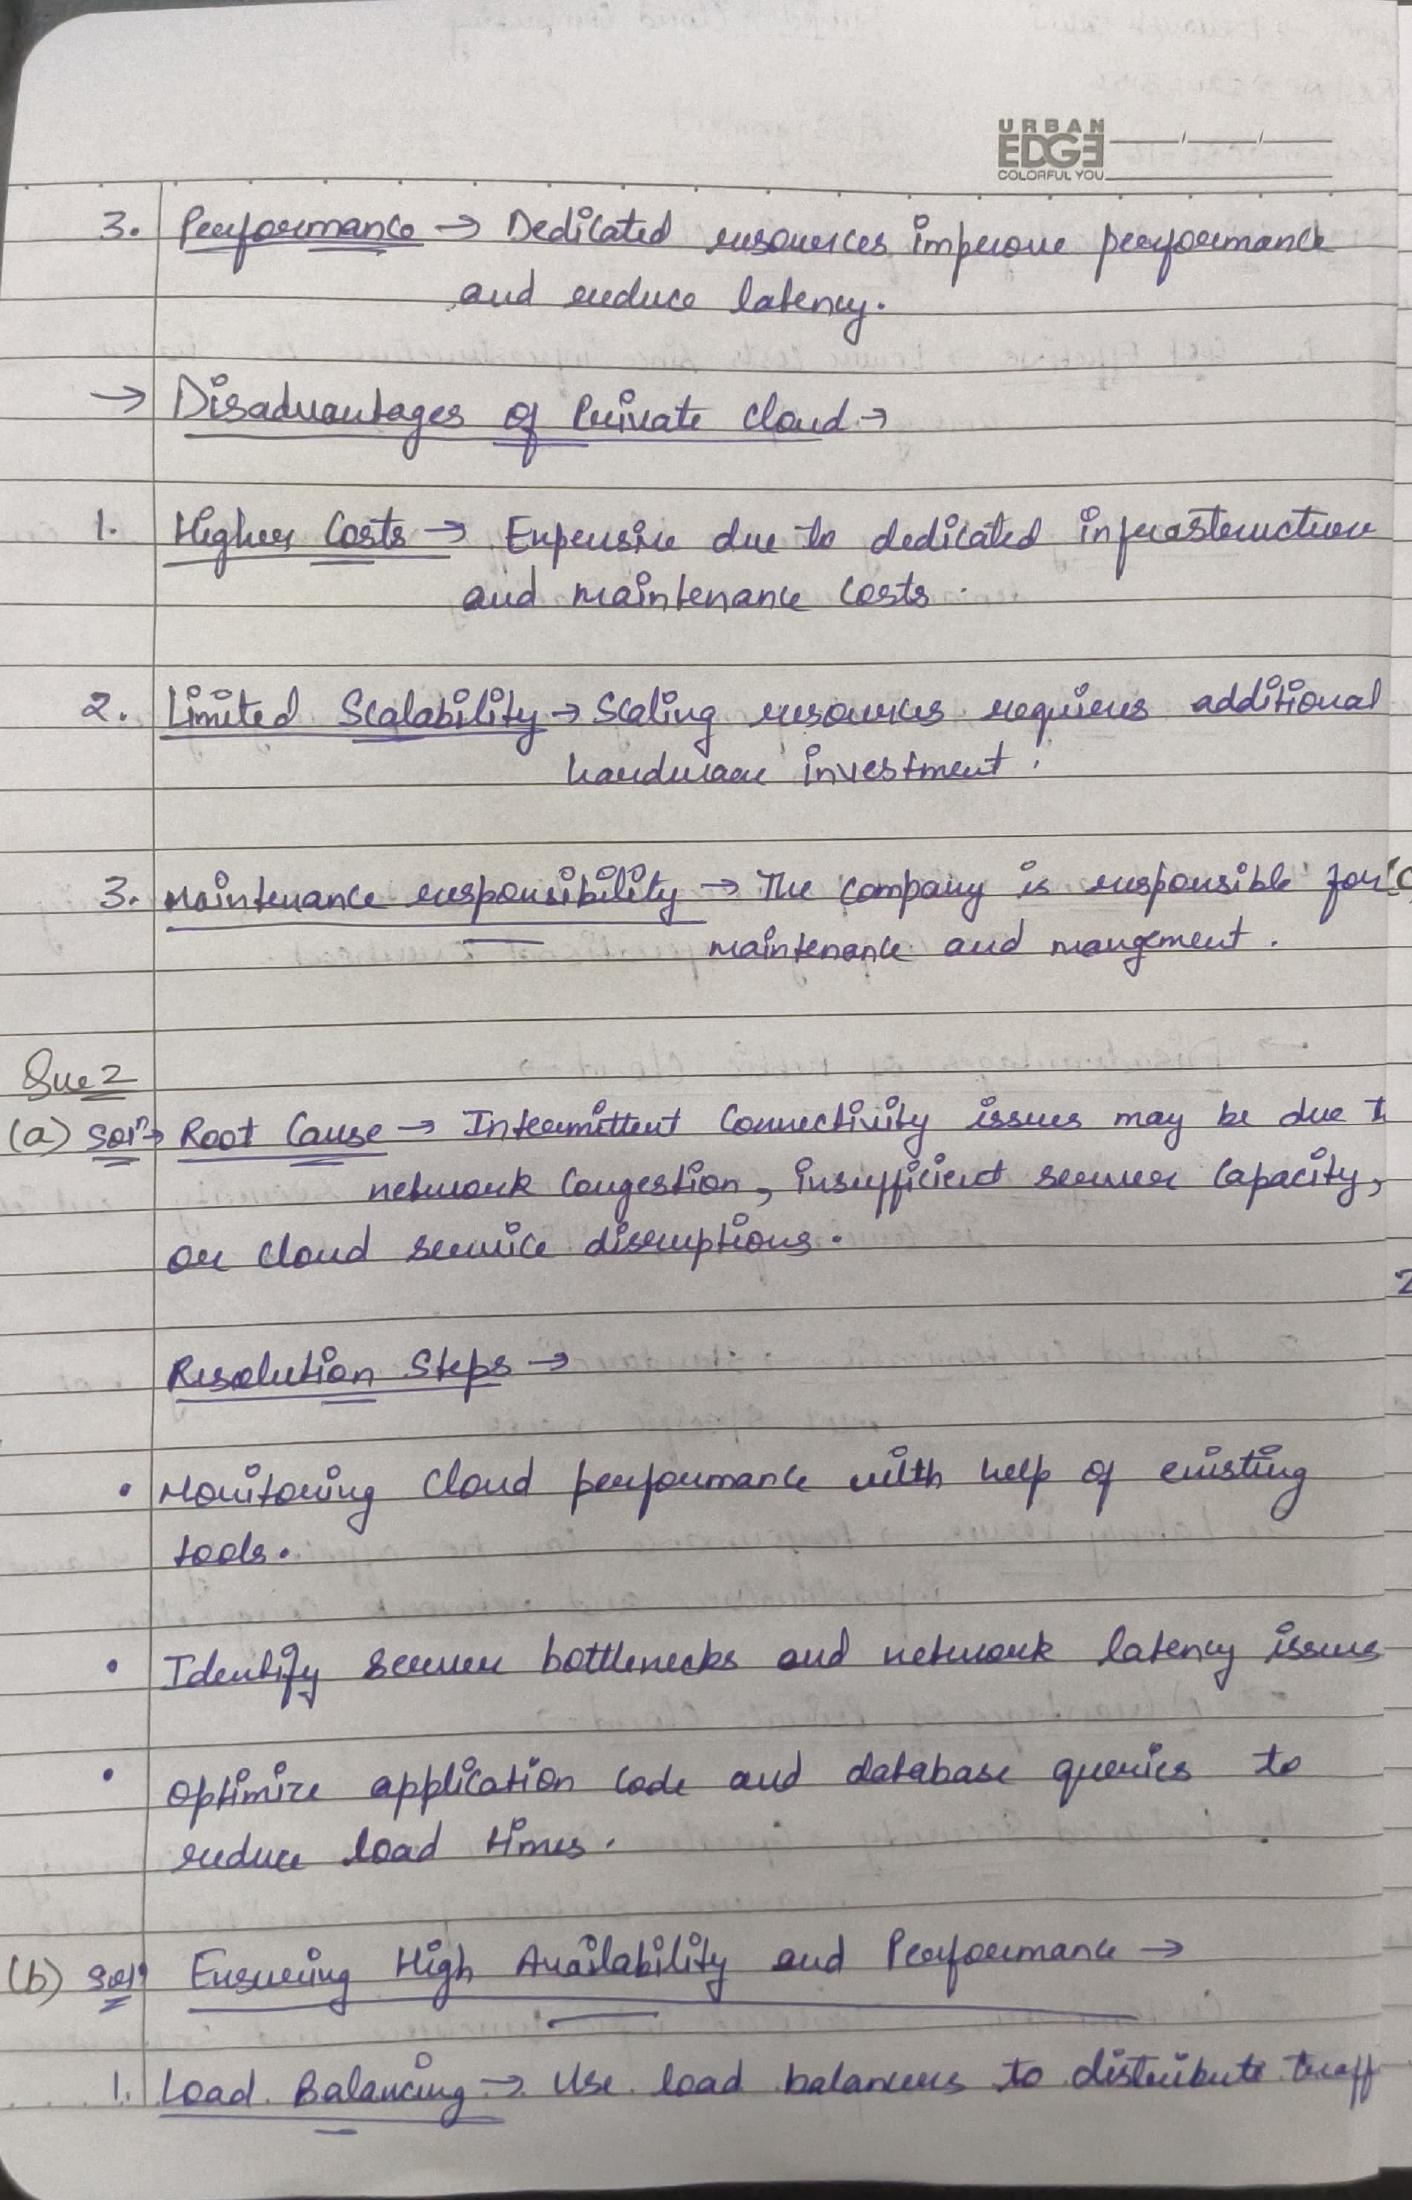 URBAN
EDGE
COLORFUL YOU
3. Performance → Dedicated resources improve performance
and reduce latency.
→ Disadvantages of Private Cloud →
1. Higher Costs → Expensive due to dedicated infrastructure
and maintenance costs.
2. Limited Scalability → Scaling resources requires additional
hardware investment.
3. Maintenance responsibility → The company is responsible for
maintenance and mangement.
Que 2
(a) Solⁿ→ Root Cause → Intermittent Connectivity issues may be due t
network Congestion, insufficient server Capacity,
or Cloud service disruptions.
Resolution Steps →
• Monitoring Cloud performance with help of existing
tools.
• Identify server bottlenecks and network latency issues
• Optimize application Code and database queries to
reduce load times.
(b) Solⁿ Ensuring High Availability and Performance →
1. Load Balancing → Use load balancers to distribute traff